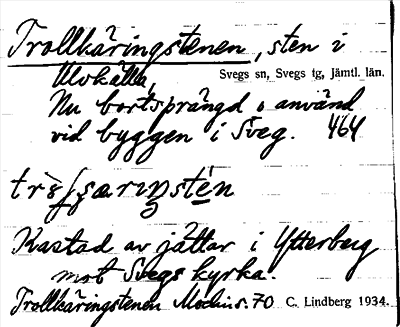 Trollkäringstenen, sten i
Ulvkälla, Svegs sn, Svegs tg, Jämtl. län.
Nu bortsprängd o använd
vid byggen i Sveg. 464
Kastad av jättar i Ytterberg
mot Svegs kyrka.
Trollkäringstenen Modin s. 70 C. Lindberg 1934.